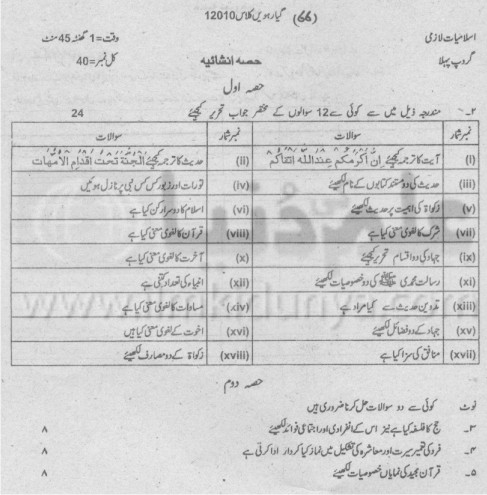 (66) گیارہویں کلاس 12010
اسلامیات لازمی
وقت = 1 گھنٹہ 45 منٹ
گروپ پہلا
حصہ انشائیہ
کل نمبر = 40
حصہ اول
۲۔ مندرجہ ذیل میں سے کوئی سے 12 سوالوں کے مختصر جواب تحریر کیجئے 24
نمبر شمار سوالات نمبر شمار سوالات
(i) آیت کا ترجمہ کیجئے اِنَّ اَکْرَمَکُمْ عِنْدَاللّٰہِ اَتْقَاکُمْ (ii) حدیث کا ترجمہ کیجئے اَلْجَنَّۃُ تَحْتَ اَقْدَامِ الْاُمَّھَاتِ
(iii) حدیث کی دو مستند کتابوں کے نام لکھیئے (iv) تورات اور زبور کس کس نبی پر نازل ہوئیں
(v) زکوٰۃ کی اہمیت پر حدیث لکھیئے (vi) اسلام کا دوسرا رکن کیا ہے
(vii) شرک کا لغوی معنی کیا ہے (viii) قرآن کا لغوی معنی کیا ہے
(ix) جہاد کی دو اقسام تحریر کیجئے (x) آخرت کا لغوی معنی کیا ہے
(xi) رسالت محمدی ﷺ کی دو خصوصیات لکھیئے (xii) انبیاء کی تعداد کتنی ہے
(xiii) تدوین حدیث سے کیا مراد ہے (xiv) مساوات کا لغوی معنی کیا ہے
(xv) جہاد کے دو فضائل لکھیئے (xvi) اخوت کے لغوی معنی کیا ہیں
(xvii) منافق کی سزا کیا ہے (xviii) زکوٰۃ کے دو مصارف لکھیئے
حصہ دوم
نوٹ کوئی سے دو سوالات حل کرنا ضروری ہیں
۳۔ حج کا فلسفہ کیا ہے نیز اس کے انفرادی اور اجتماعی فوائد لکھیئے ۸
۴۔ فرد کی تعمیر سیرت اور معاشرہ کی تشکیل میں نماز کیا کردار ادا کرتی ہے ۸
۵۔ قرآن مجید کی نمایاں خصوصیات لکھیئے ۸